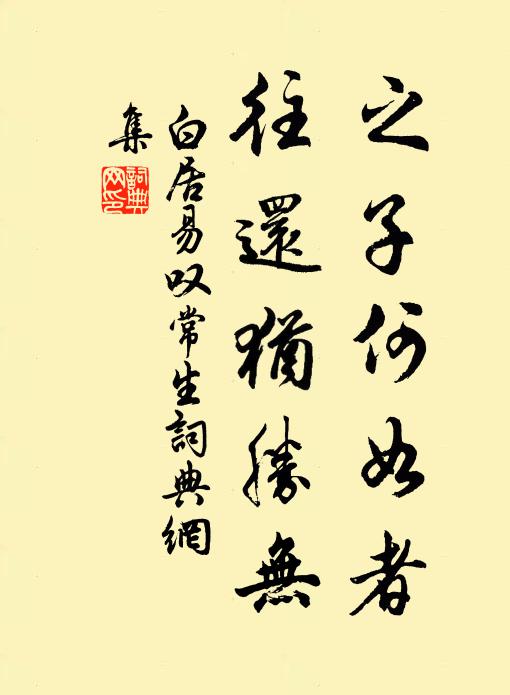 之子何如者
往還猶勝無
白居易叹常生詞典網
集
詞典網印